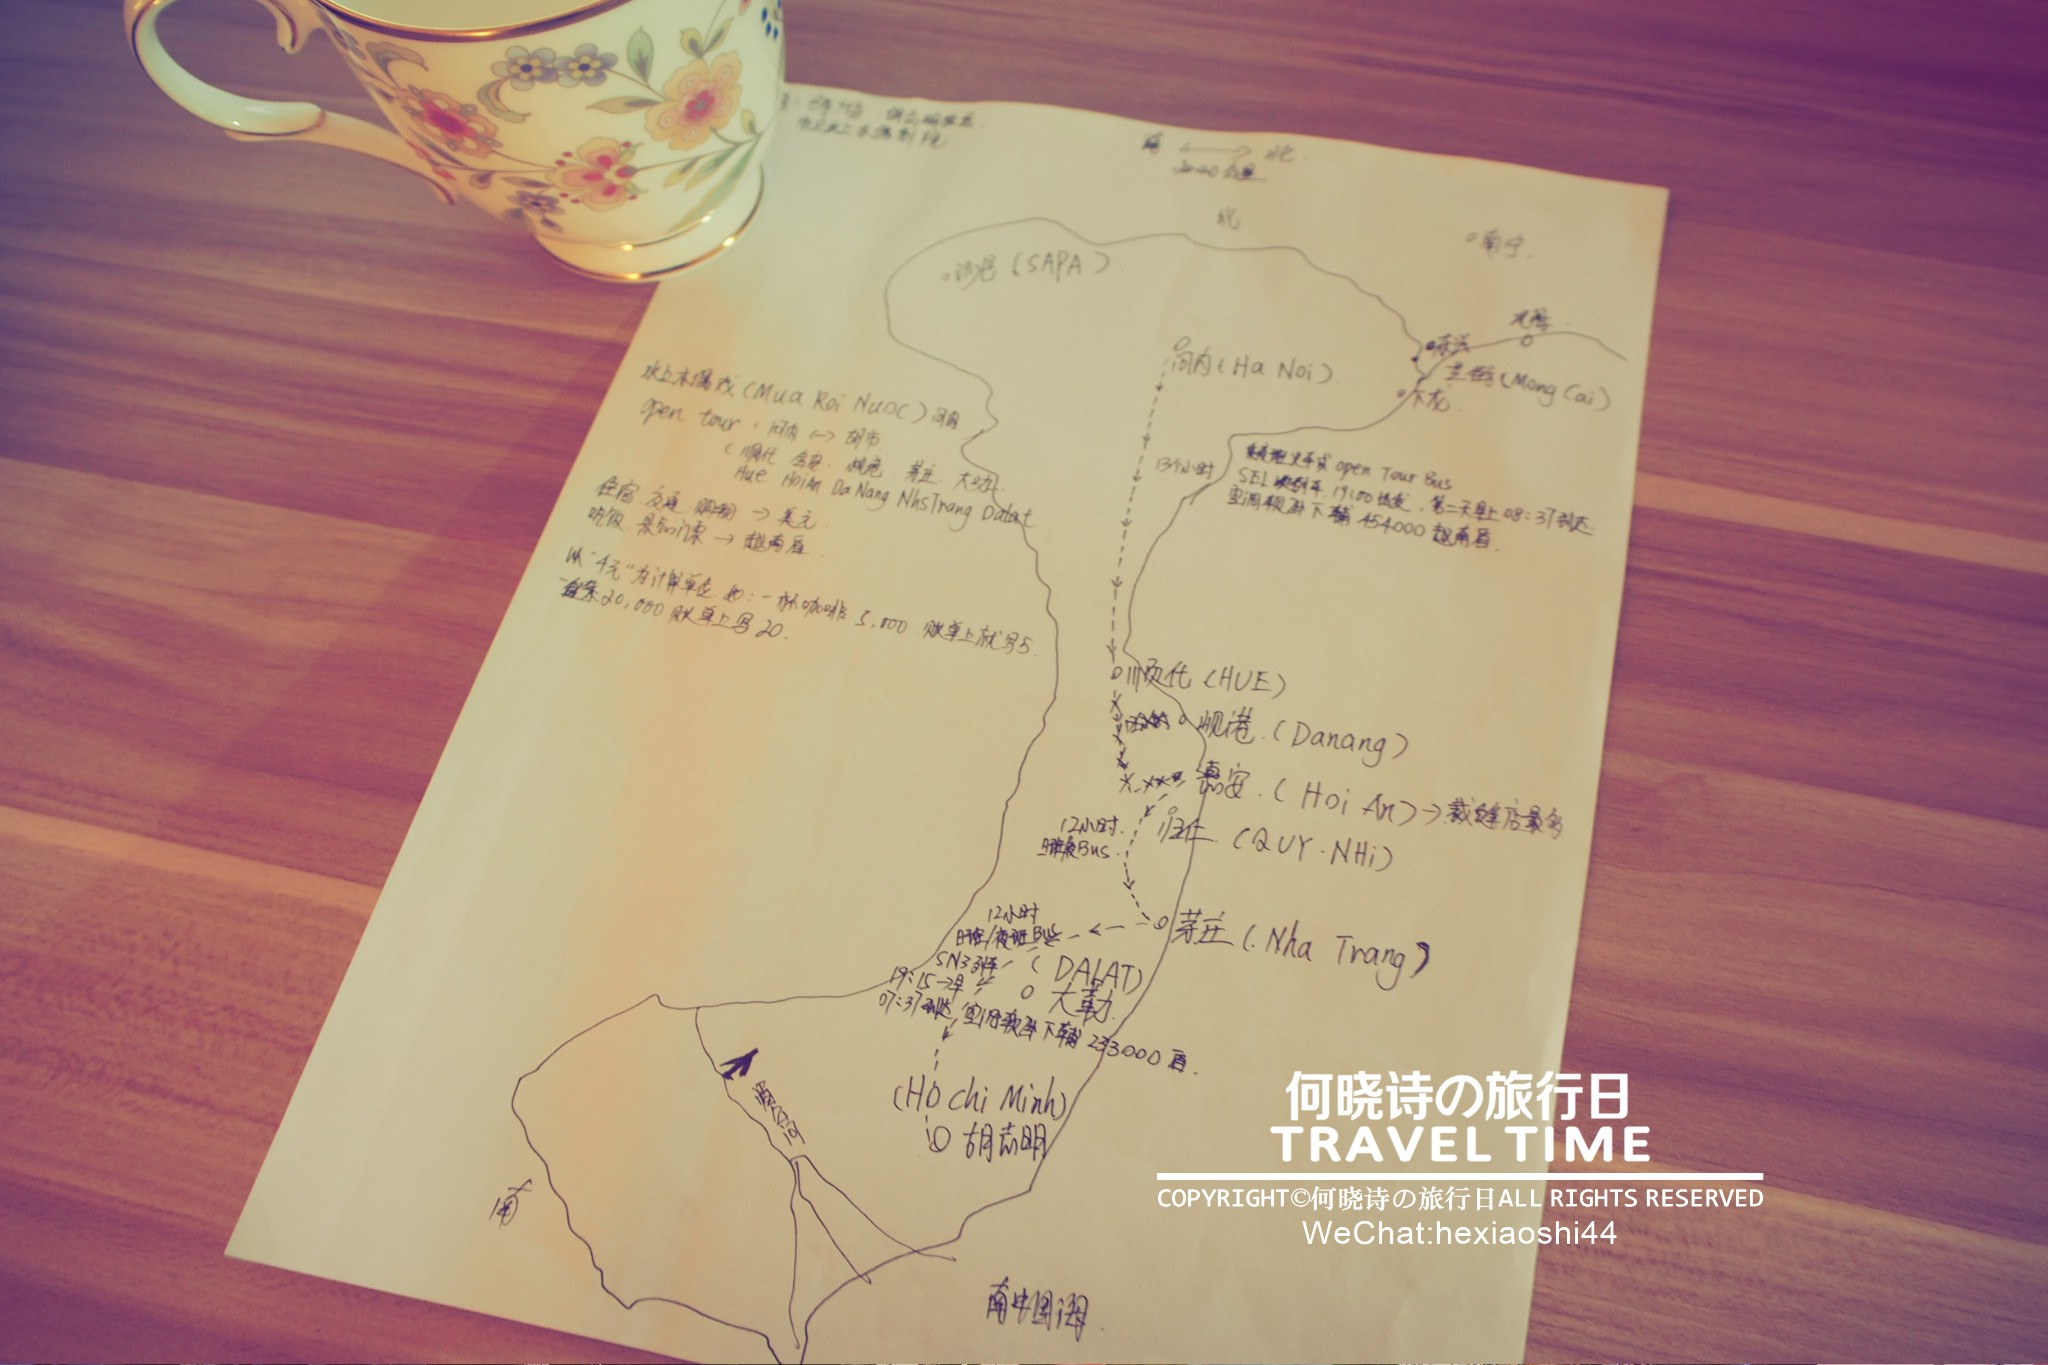 南 ⟷ 北
2000公里
北
南宁
沙巴 (SAPA)
东兴
河内 (Ha Noi)
芒街 (Mong Cai)
下龙
水上木偶戏 (Mua Roi Nuoc) 河内
open tour: 河内 ↔ 胡市
(顺化 会安 岘港 芽庄 大叻
Hue HoiAn DaNang NhsTrang Dalat
住宿 交通 购物 → 美元
吃饭 景点门票 → 越南盾
以"千元"为计算单位 如:一杯咖啡 5,000 账单上就写5.
20,000 账单上写20.
13个小时
火车或 open Tour Bus
SE1次列车 19:00出发,第二天早上08:37到达
空调软卧下铺 454000 越南盾.
顺化 (HUE)
岘港.(Danang)
惠安.(Hoi An)→裁缝店最多
归仁 (QUY.NHi)
12小时
Bus
芽庄 (.Nha Trang)
12小时
日班/夜班Bus
SN3
(DALAT)
大勒
19:15→
07:37到达 空调软卧下铺 233000盾.
(Ho chi Minh)
胡志明
湄公河
南
南中国海
何晓诗の旅行日
TRAVEL TIME
COPYRIGHT©何晓诗の旅行日ALL RIGHTS RESERVED
WeChat:hexiaoshi44